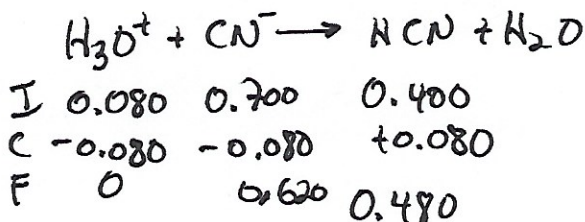 H₃O⁺ + CN⁻ → HCN + H₂O
I 0.080 0.700 0.400
C -0.080 -0.080 +0.080
F 0 0.620 0.480